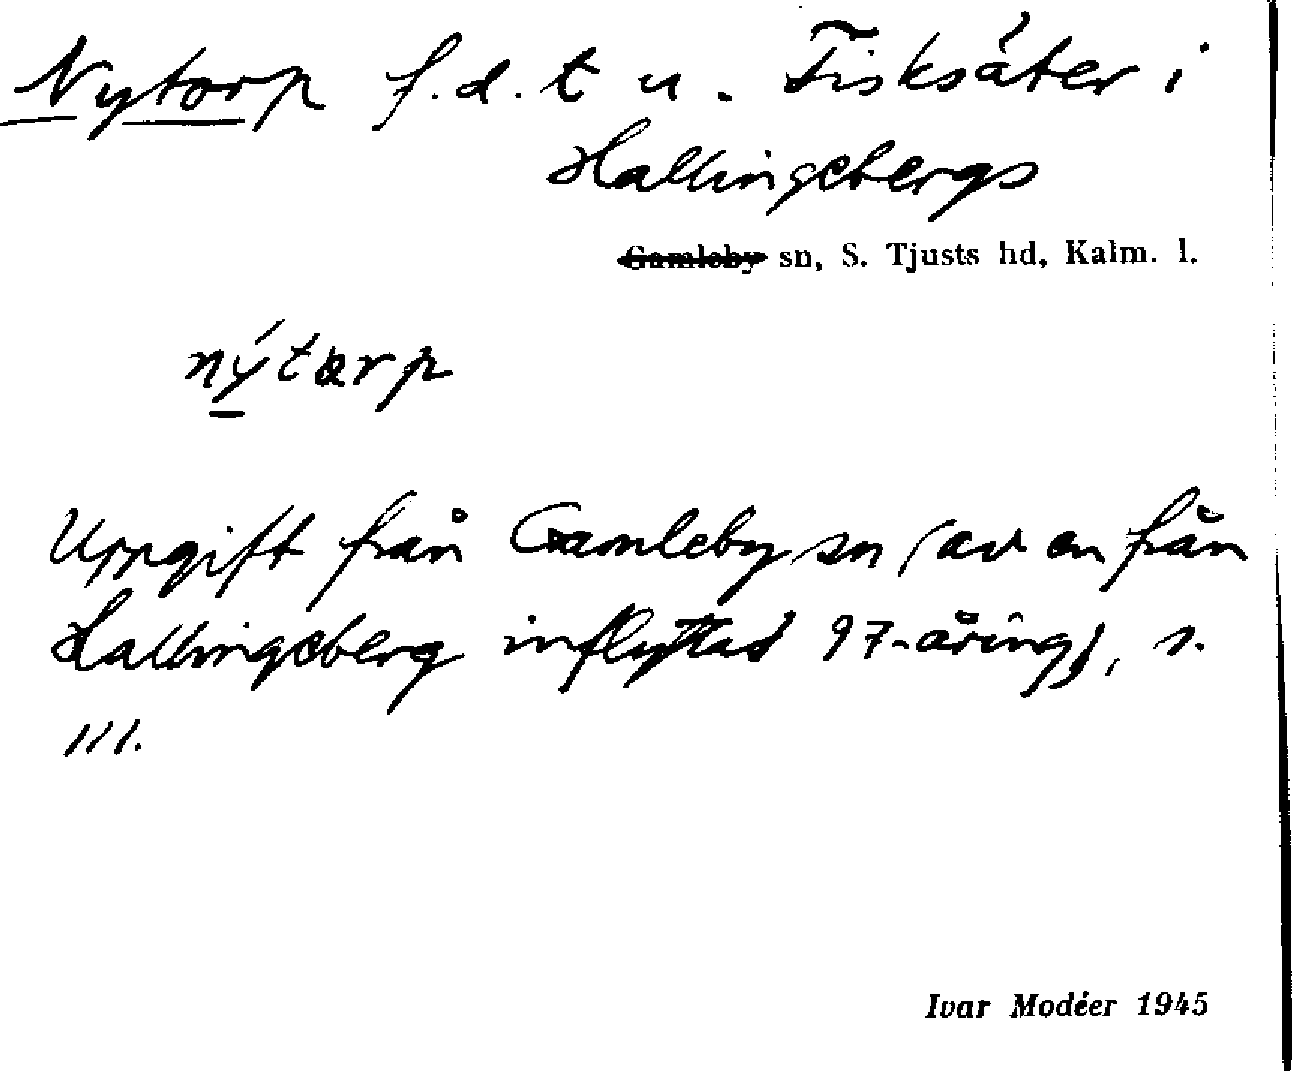 Nytorp f.d. t u. Fisksäter i
Hallingebergs
Gamleby sn, S. Tjusts hd, Kalm. l.
nýtorp
Uppgift från Gamleby sn (av en från
Hallingeberg inflyttad 97-åring), s.
111.
Ivar Modéer 1945